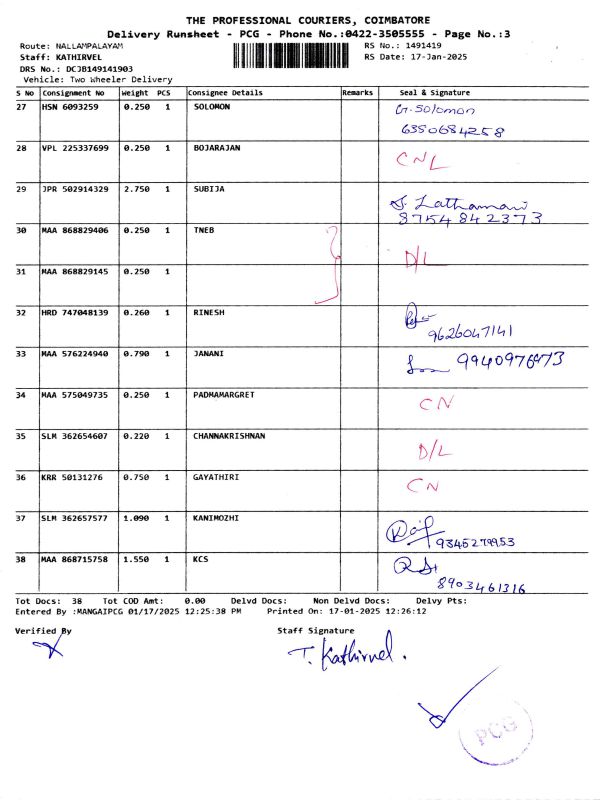 THE PROFESSIONAL COURIERS, COIMBATORE
Delivery Runsheet - PCG - Phone No.:0422-3505555 - Page No.:3
Route: NALLAMPALAYAM RS No.: 1491419
Staff: KATHIRVEL RS Date: 17-Jan-2025
DRS No.: DCJB149141903
Vehicle: Two Wheeler Delivery
S No Consignment No Weight PCS Consignee Details Remarks Seal & Signature
27 HSN 6093259 0.250 1 SOLOMON G. Solomon
6350684258
28 VPL 225337699 0.250 1 BOJARAJAN CNL
29 JPR 502914329 2.750 1 SUBIJA S Lathamani
8754842373
30 MAA 868829406 0.250 1 TNEB
D/L
31 MAA 868829145 0.250 1
32 HRD 747048139 0.260 1 RINESH
9626047141
33 MAA 576224940 0.790 1 JANANI
34 MAA 575049735 0.250 1 PADMAMARGRET CN
35 SLM 362654607 0.220 1 CHANNAKRISHNAN D/L
36 KRR 50131276 0.750 1 GAYATHIRI CN
37 SLM 362657577 1.090 1 KANIMOZHI
38 MAA 868715758 1.550 1 KCS
8903461316
Tot Docs: 38 Tot COD Amt: 0.00 Delvd Docs: Non Delvd Docs: Delvy Pts:
Entered By :MANGAIPCG 01/17/2025 12:25:38 PM Printed On: 17-01-2025 12:26:12
Verified By Staff Signature
T. Kathirvel.
PCG